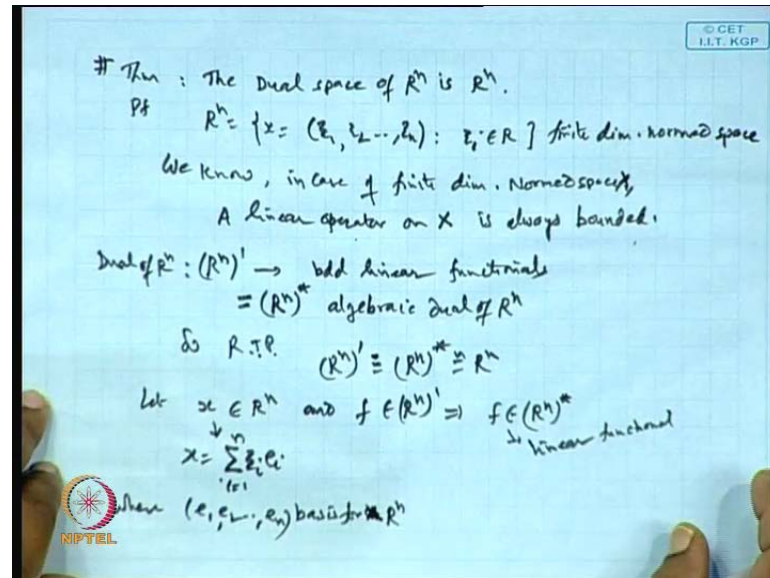 © CET
I.I.T. KGP
# Thm : The Dual space of Rⁿ is Rⁿ.
Pf
Rⁿ = {x = (ξ₁, ξ₂ ..., ξₙ) : ξᵢ ∈ R } finite dim. normed space
We know, in case of finite dim. Normed space X,
A linear operator on X is always bounded.
Dual of Rⁿ : (Rⁿ)' → bdd linear functionals
= (Rⁿ)* algebraic dual of Rⁿ
So R.T.P. (Rⁿ)' ≡ (Rⁿ)* ≅ Rⁿ
Let x ∈ Rⁿ and f ∈ (Rⁿ)' ⇒ f ∈ (Rⁿ)*
↓ ↳ linear functional
x = Σⁿᵢ₌₁ ξᵢ eᵢ
where (e₁, e₂ ..., eₙ) basis for Rⁿ
NPTEL